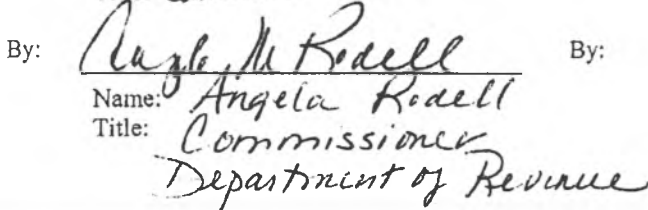 By: Angela M Rodell By:
Name: Angela Rodell
Title: Commissioner
Department of Revenue